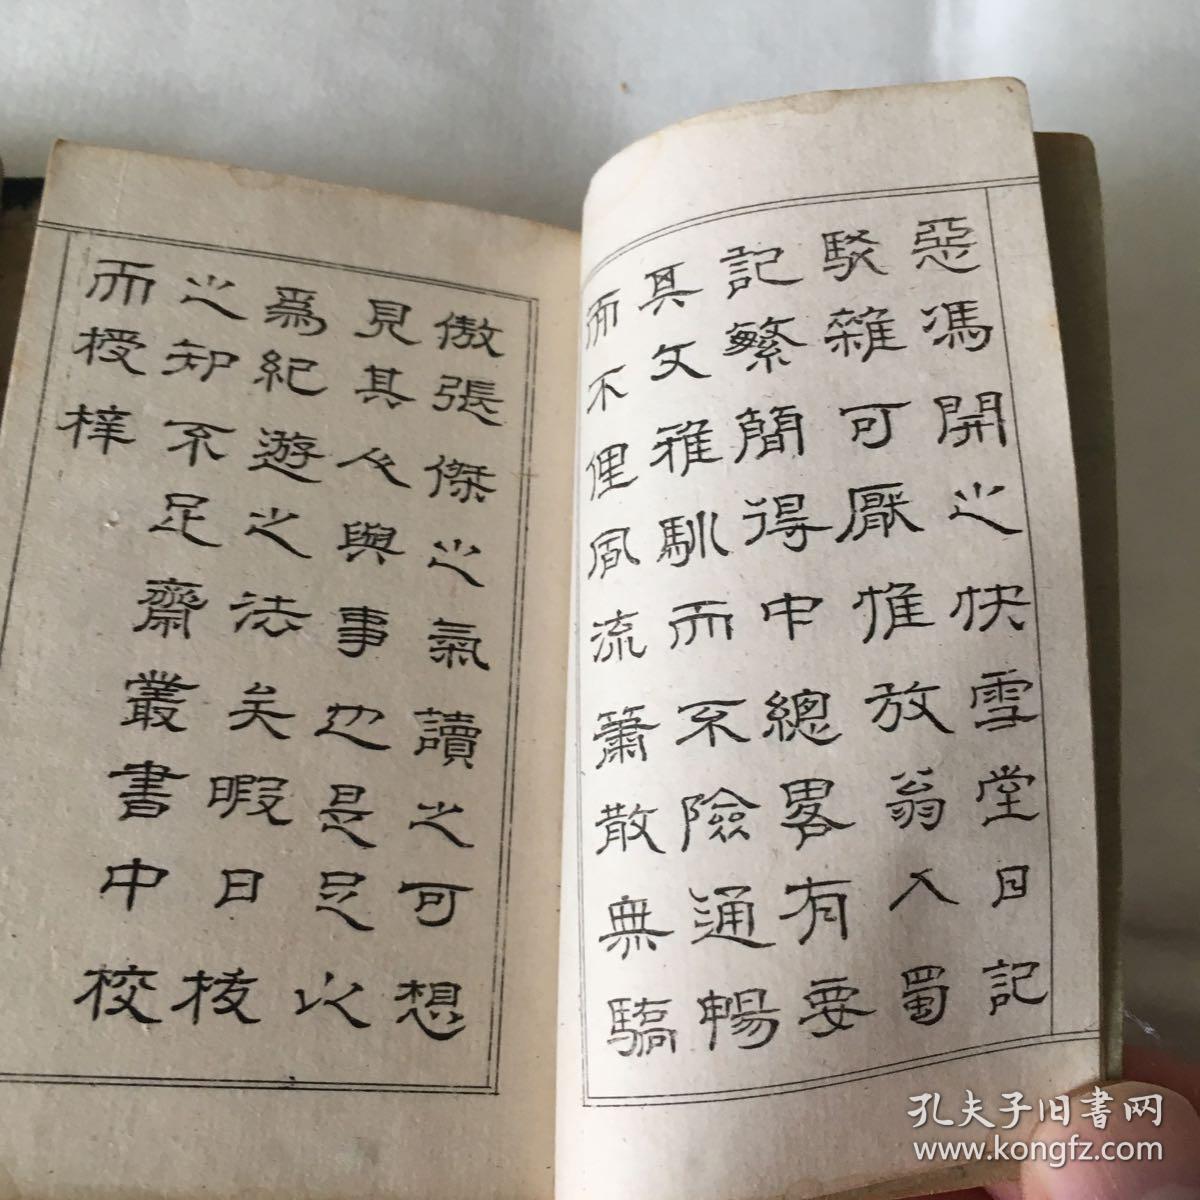 惡馮開之快雪堂日記
駁雜可厭惟放翁入蜀
記繁簡得中總畧有要
其文雅馴而不險通暢
而不俚風流簫散無驕
傲張傑之氣讀之可想
見其人與事也是足以
爲紀遊之法矣暇日拔
之知不足齋叢書中校
而授梓
孔夫子旧书网
www.kongfz.com